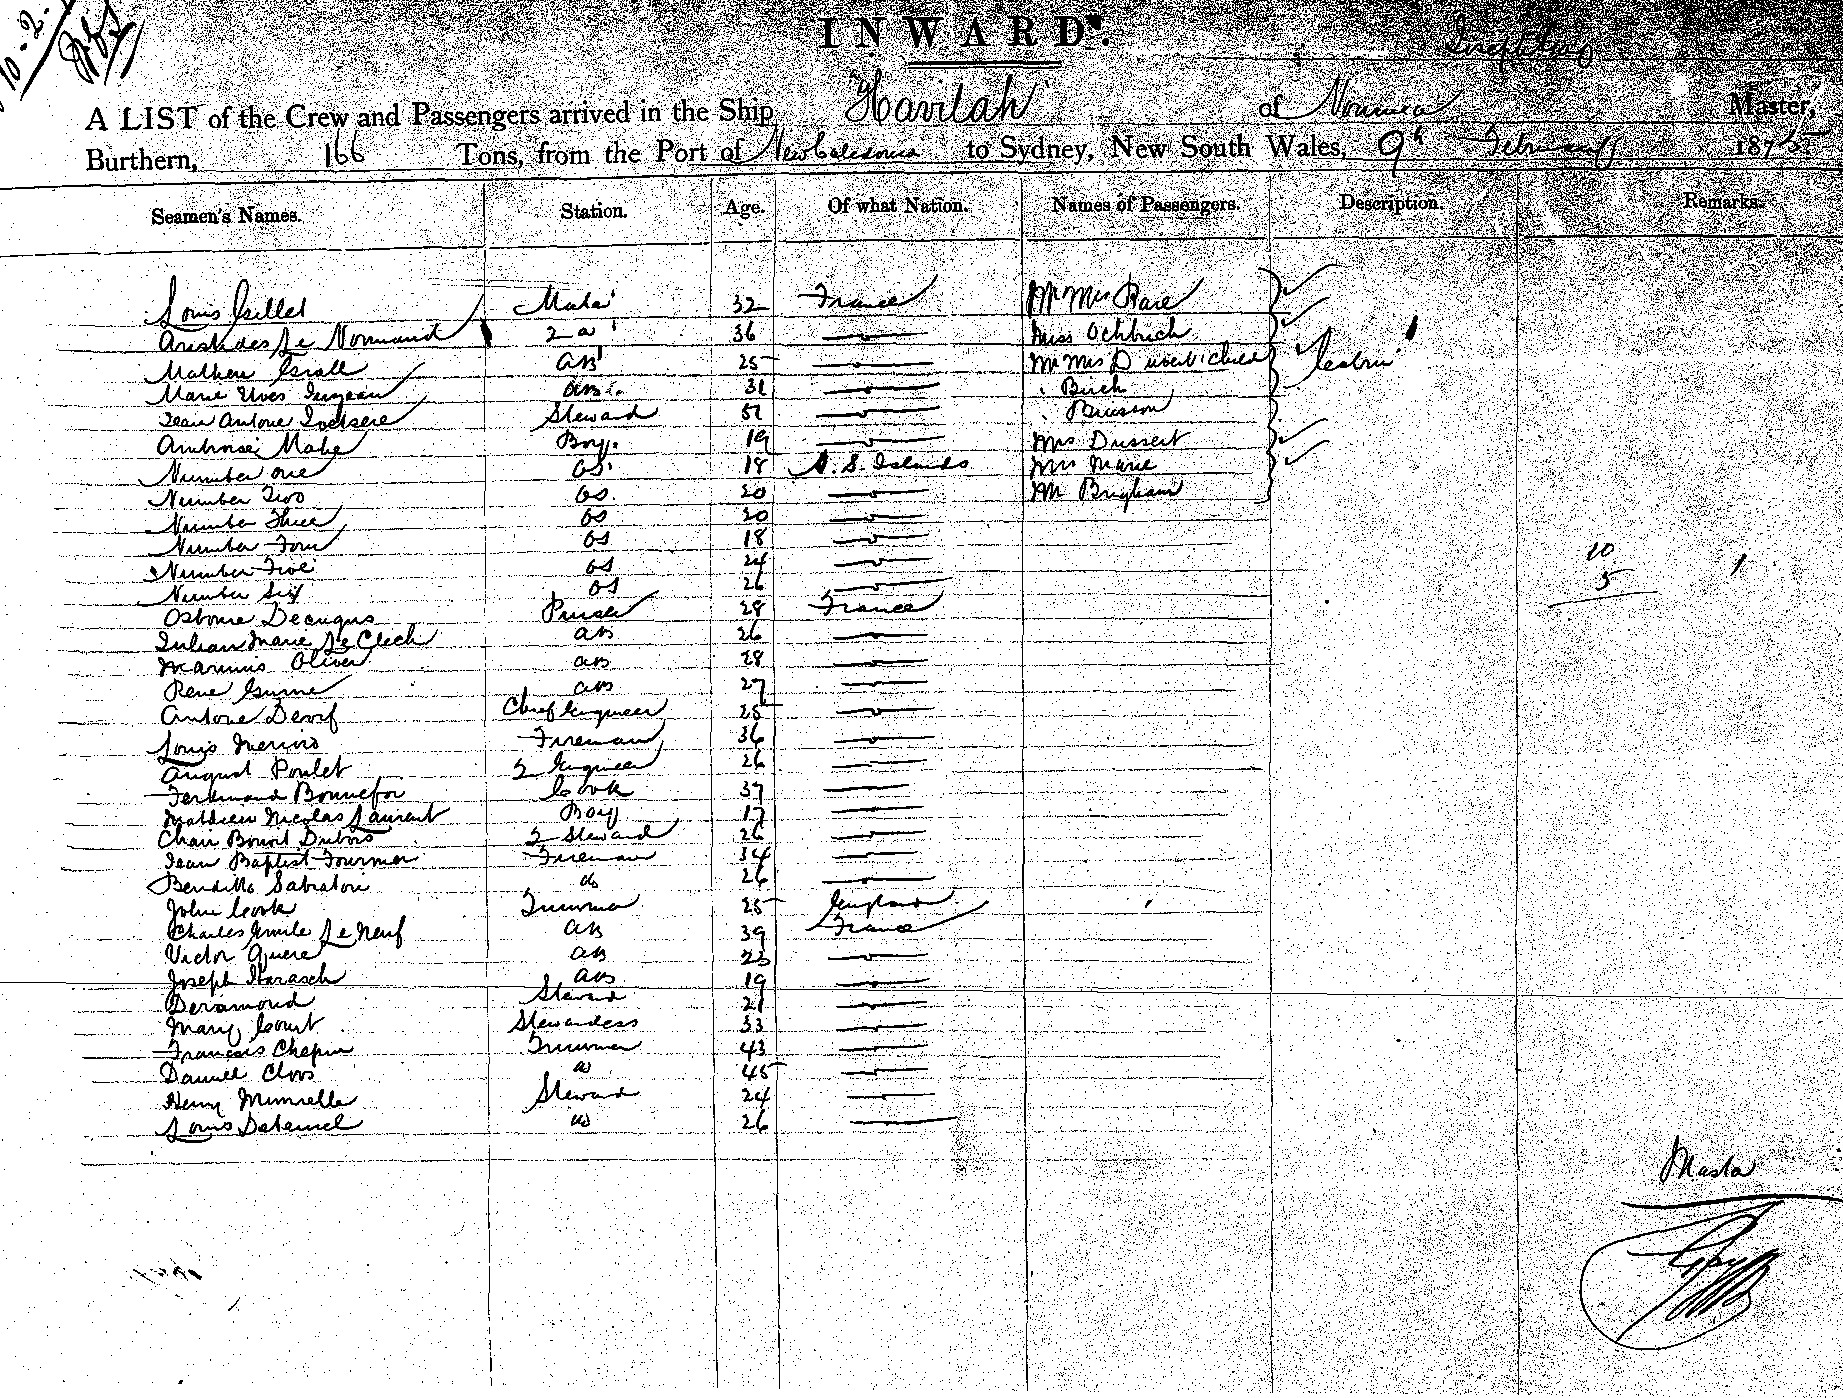 10-2-
INWARD.
A LIST of the Crew and Passengers arrived in the Ship Havilah of Noumea Master,
Burthern, 166 Tons, from the Port of New Caledonia to Sydney, New South Wales, 9th February 1875
Seamen's Names. Station. Age. Of what Nation. Names of Passengers. Description. Remarks.
Louis Gillet Mate 32 France Mr Mrs Rare
Aristides Le Normand 2 " 36 Miss Ochbrich
Mathew AB 25 Mr Mrs D child Cabin
Marie Yves AB 31 " Birch
Jean Antone Steward 51 " Buisson
Ambroise Mahe Boy 19 Mrs Dussert
Number One OS 18 S. S. Islands Mrs Marie
Number Two OS 20 Mr Brigham
Number Three OS 20
Number Four OS 18
Number Five OS 24
Number Six OS 26
Osborne Decugis Purser 28 France
Julian Marie Le Clech AB 26
Marinus Oliver AB 28
Rene AB 27
Antone Chief Engineer 25
Louis Fireman 36
August Poulet 2 Engineer 26
Ferdinand Bonnefor Cook 37
Mathieu Nicolas Laurent Boy 17
Benoit Dubois 2 Steward 26
Jean Baptist Fournier Fireman 34
Salvatore 26
John Cook Trimmer 25 England
Charles Emile Le Neuf AB 39 France
Victor Quere AB 23
Joseph AB 19
Deramond Steward 21
Mary Court Stewardess 33
Francois Chapin Trimmer 43
Daniell Cloos 45
Henry Steward 24
Louis 26
10
5
Master